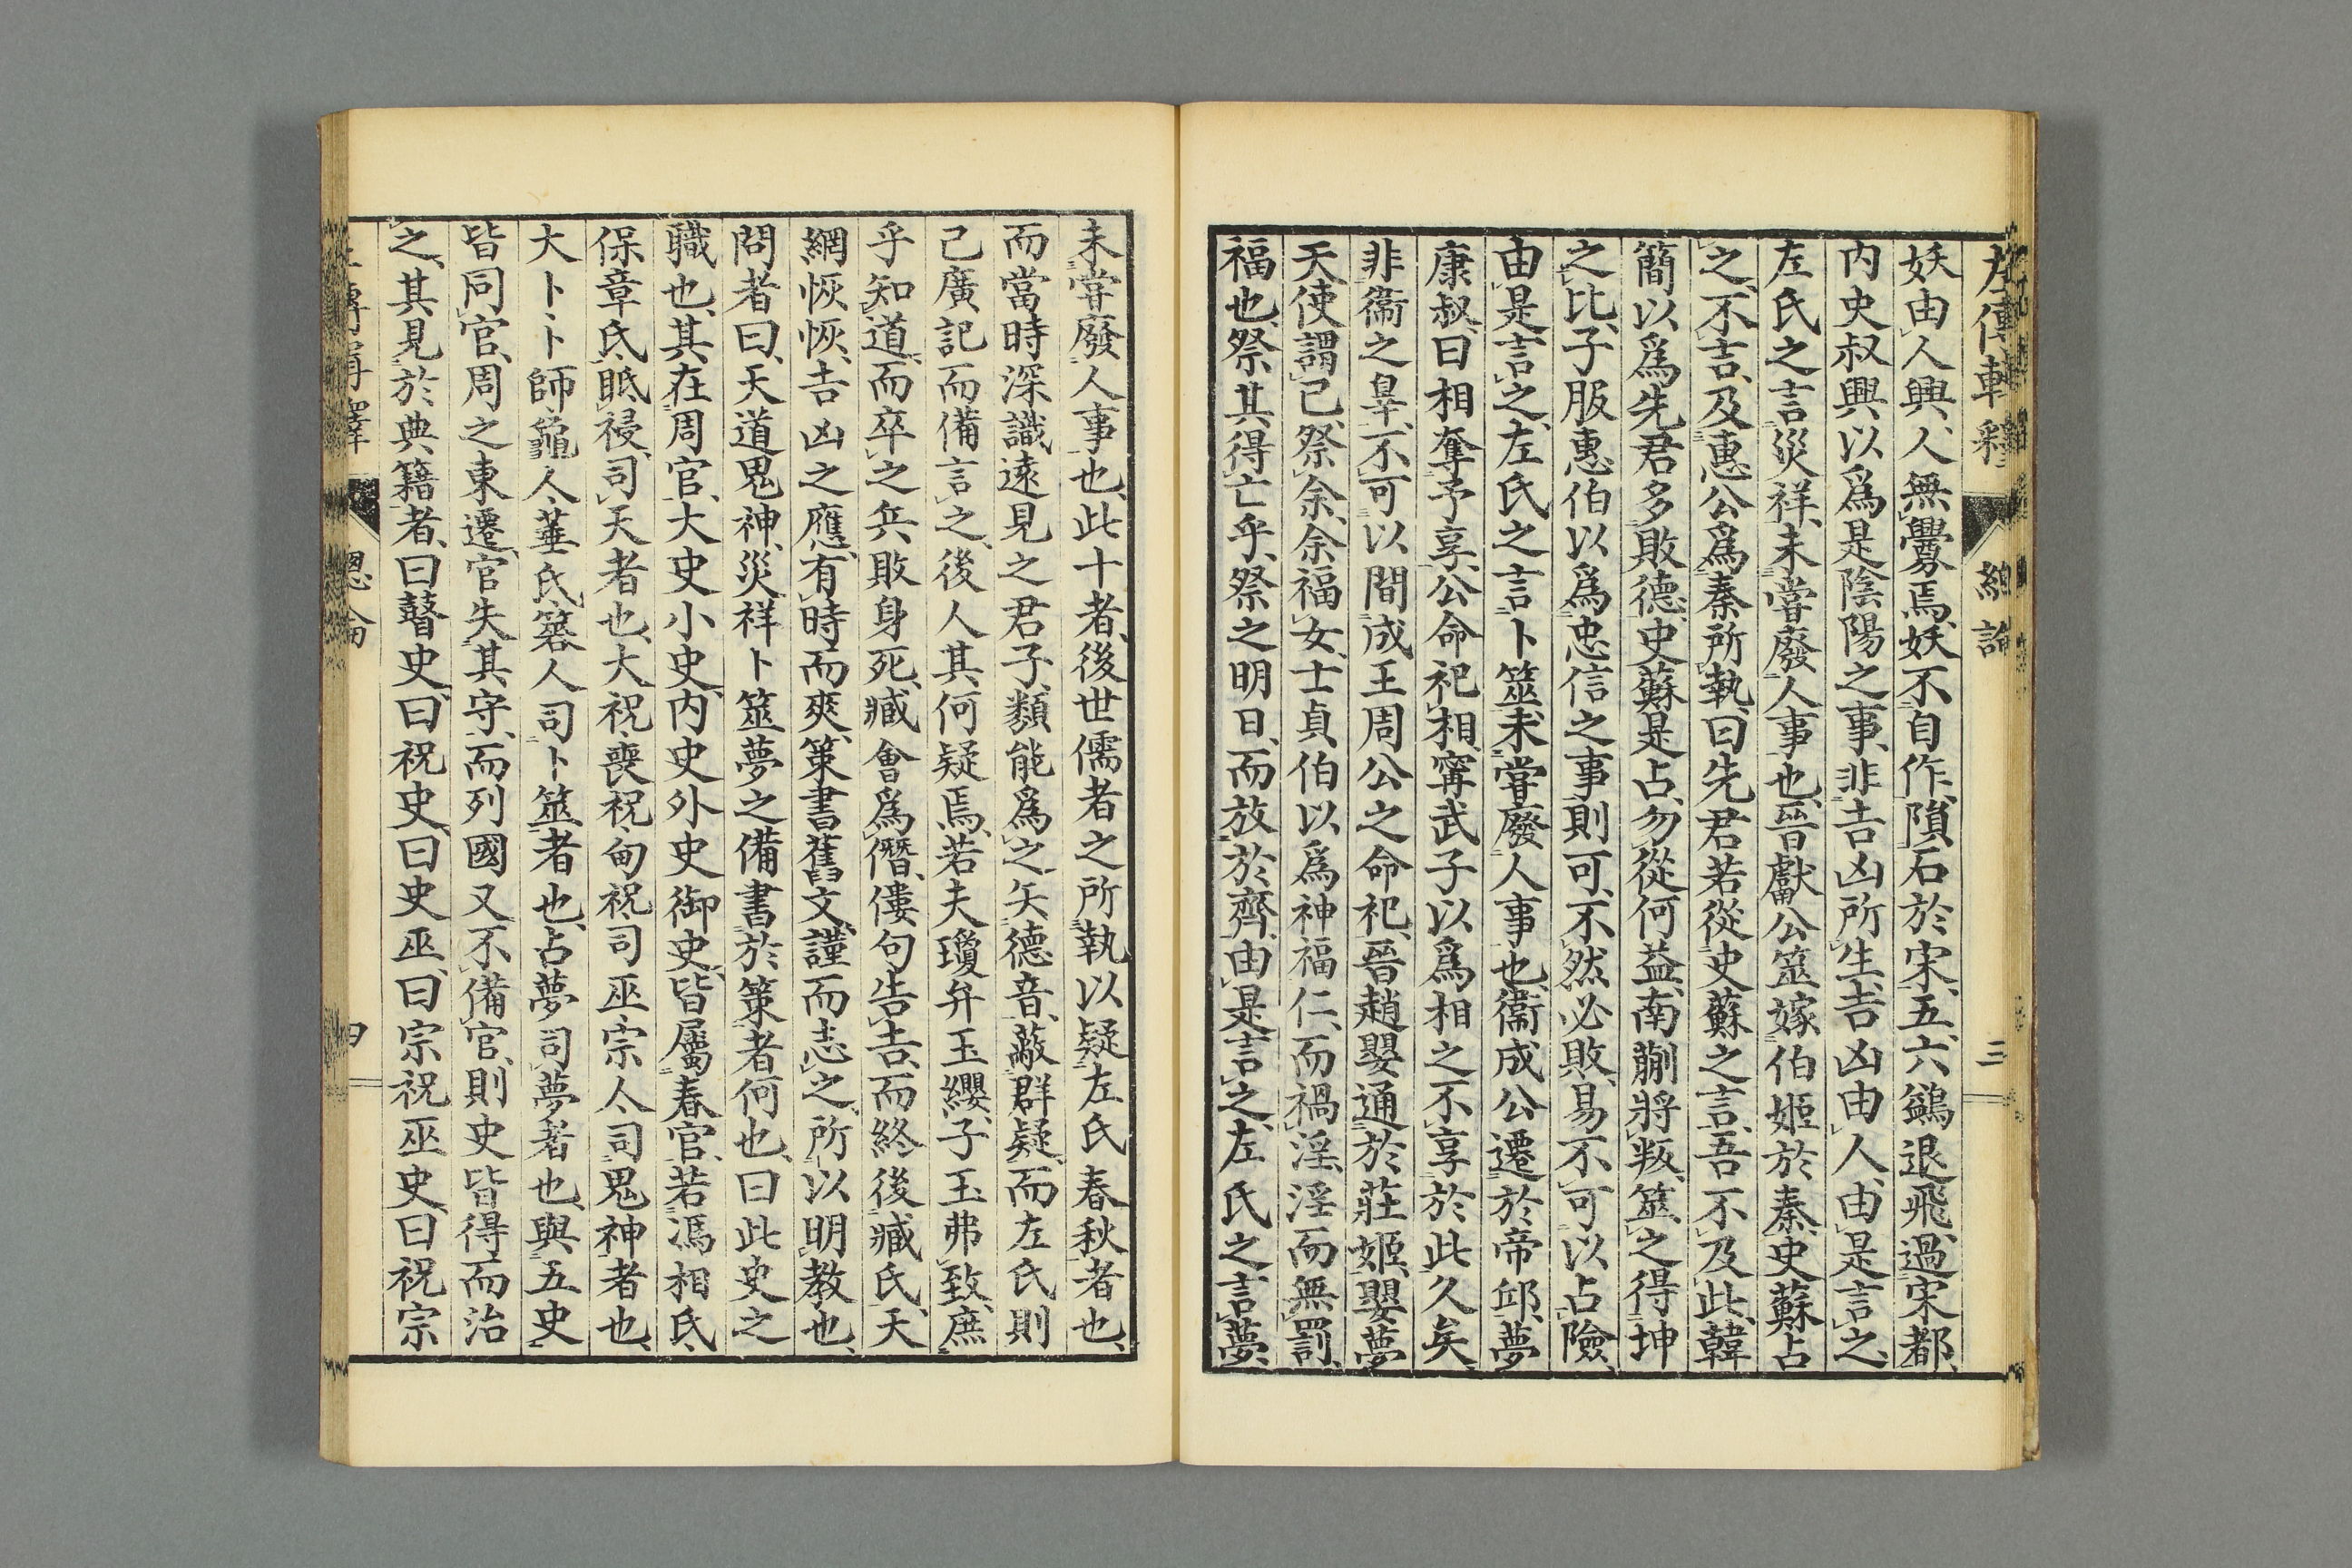 左傳輯釋 總論 三
妖由人興、人無釁焉、妖不自作、隕石於宋、五、六鷁退飛、過宋都、
内史叔興以爲是陰陽之事、非吉凶所生、吉凶由人、由是言之、
左氏之言災祥、未嘗廢人事也、晉獻公筮嫁伯姬於秦、史蘇占
之、不吉、及惠公爲秦所執、曰先君若從史蘇之言、吾不及此、韓
簡以爲先君多敗德、史蘇是占、勿從何益、南蒯將叛、筮之得坤
之比、子服惠伯以爲忠信之事則可、不然必敗、易不可以占險、
由是言之、左氏之言卜筮、未嘗廢人事也、衞成公遷於帝邱、夢
康叔、曰相奪予享、公命祀相、甯武子以爲相之不享於此久矣、
非衞之辠、不可以間成王周公之命祀、晉趙嬰通於莊姬、嬰夢
天使謂己、祭余、余福女、士貞伯以爲神福仁、而禍淫、淫而無罰、
福也、祭其得亡乎、祭之明日、而放於齊、由是言之、左氏之言夢、
未嘗廢人事也、此十者、後世儒者之所執以疑左氏春秋者也、
而當時深識遠見之君子、類能爲之、矢德音、蔽群疑、而左氏則
己廣記而備言之、後人其何疑焉、若夫瓊弁玉纓、子玉弗致、庶
乎知道、而卒之兵敗身死、臧會爲僭、僂句告吉、而終後臧氏、天
網恢恢、吉凶之應、有時而爽、策書舊文、謹而志之、所以明教也、
問者曰、天道鬼神、災祥卜筮夢之備書於策者何也、曰此史之
職也、其在周官、大史小史、内史外史御史、皆屬春官、若馮相氏、
保章氏、眡祲、司天者也、大祝喪祝甸祝司巫宗人、司鬼神者也、
大卜卜師龜人菙氏簭人、司卜筮者也、占夢、司夢者也、與五史
皆同官、周之東遷、官失其守、而列國又不備官、則史皆得而治
之、其見於典籍者、曰瞽史、曰祝史、曰史巫、曰宗祝巫史、曰祝宗
總論 四